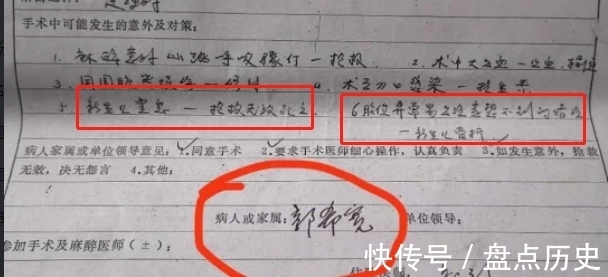 手术中可能发生的意外及对策:
1. 麻醉意外 心跳呼吸骤停一抢救 2. 术中大出血一止血、输血
3. 周围脏器损伤一修补 4. 术后刀口感染一抗生素
5 新生儿窒息 一 抢救无效死亡
6胎位异常
一新生儿骨折
病人家属或单位领导意见: 1.同意手术 2.要求手术医师细心操作,认真负责 3.如发生意外,抢救
无效,决无怨言 4.其他:
病人或家属: 郭希宽 单位领导:
参加手术及麻醉医师(±):
快传号 / 盘点历史